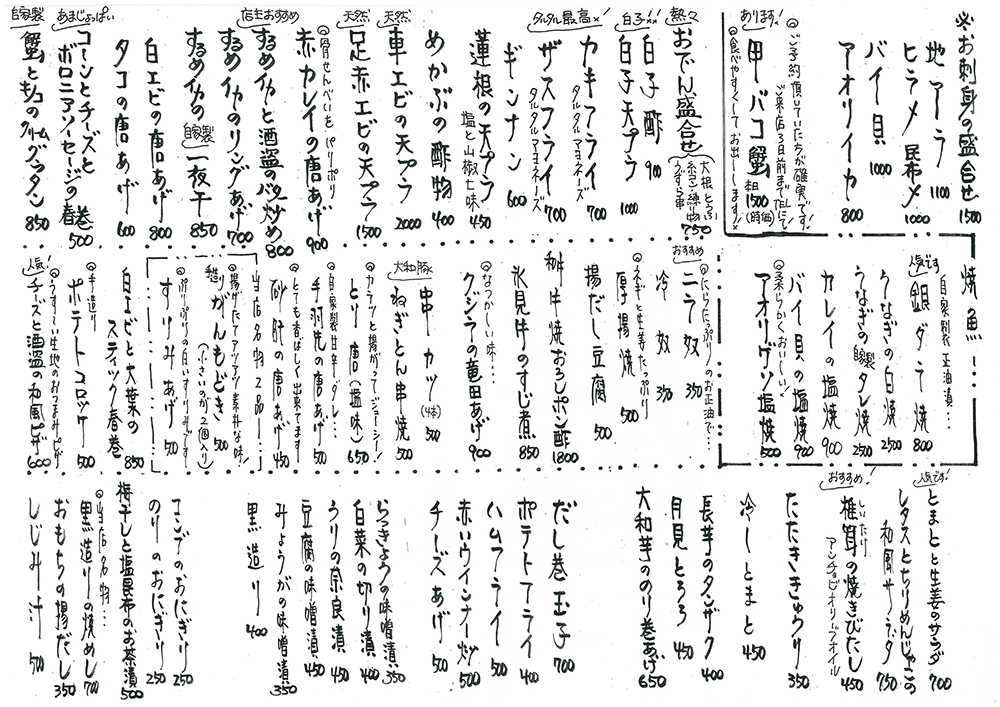 ※お刺身の盛合せ 1500
地アーラ 1100
ヒラメ昆布〆 1000
バイ貝 1000
アオリイカ 800
あります!
◎ご予約頂いていたら方が確実です!
ご来店3日前までTELにて!
甲バコ蟹 1500 (時価)
◎食べやすくしてお出しします!!
熱々
おでん盛合せ 750
大根 とうふ
糸こん 練り物
うずら串
白子!!
白子酢 900
白子天プラ 1000
タルタル最高!
カキフライ 700
タルタルマヨネーズ
ザスフライ 700
タルタルマヨネーズ
ギンナン 600
蓮根の天プラ 450
塩と山椒七味
めかぶの酢物 400
天然
車エビの天プラ 2000
天然
足赤エビの天プラ 1500
◎骨せんべいをパリポリ
赤カレイの唐あげ 900
店主おすすめ
するめイカと酒盗のバター炒め 800
するめイカのリングあげ 700
するめイカの自家製一夜干 850
白エビの唐あげ 800
タコの唐あげ 600
あまじょっぱい
コーンとチーズと
ボロニアソーセージの春巻 500
自家製
蟹とキノコのクリームグラタン 850
焼魚
自家製醤油漬…
人気です
銀ダラ焼 800
うなぎの白焼 2500
うなぎの自家製タレ焼 2500
カレイの塩焼 900
◎柔らかくおいしい!
バイ貝の塩焼 900
アオリゲソ塩焼 500
◎にらたっぷりのお正油で…
おすすめ
ニラ奴 350
冷奴 350
◎ネギと生姜たっぷり
厚揚焼 500
揚だし豆腐 500
和牛焼おろしポン酢 1800
氷見牛のすじ煮 850
◎なつかしい味…
クジラの竜田あげ 900
大和豚
串カツ (4本) 500
ねぎとん串焼 500
◎カラッと揚がってジューシー!
とり唐(塩味) 650
◎自家製生辛ダレ…
手羽先の唐あげ 500
◎とても香ばしく出来てます!
砂肝の唐あげ 450
当店名物2品!
◎揚げたてアツアツ!素朴な味!
手造
がんもどき 500
(小さいのが2個入り)
◎ぷりぷりの白いすりみです
すりみあげ 500
白エビと大葉の
スティック春巻 850
◎手造り
ポテトコロッケ 500
◎うす〜い生地のおつまみピザ
人気!
チーズと酒盗の和風ピザ 600
とまとと生姜のサラダ 700
人気です!
レタスとちりめんじゃこの
和風サラダ 750
おすすめ!
椎茸の焼きびたし 450
しいたけ
アンチョビオイル
たたききゅうり 350
冷しとまと 450
長芋のタンザク 400
月見とろろ 450
大和芋ののり巻あげ 650
だし巻玉子 700
ポテトフライ 400
ハムフライ 500
赤いウインナー炒 500
チーズあげ 500
らっきょうの味噌漬 350
白菜の切り漬 400
うりの奈良漬 450
豆腐の味噌漬 450
みょうがの味噌漬 350
黒造り 400
コンブのおにぎり 250
のりのおにぎり 250
梅干しと塩昆布のお茶漬 500
◎当店名物…
黒造りの焼めし 700
おもちの揚だし 350
しじみ汁 500